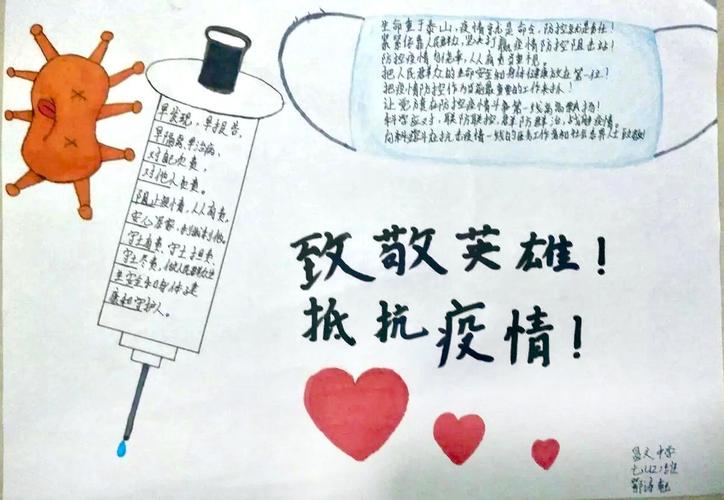 生命重于泰山,疫情就是命令,防控就是责任!
紧紧依靠人民群众,坚决打赢疫情防控阻击战!
防控疫情
人人有责
把人民群众的生命安全和身体健康放在第一位!
把疫情防控作为当前最重要的工作来抓!
让党旗在防控疫情斗争第一线高高飘扬!
科学应对,联防联控,群防群治,战胜疫情。
向科学
抗击疫情一线的医务工作者和社会各界人士致敬!
早发现,早报告,
早隔离,早治病、
对自己负责,
对他人负责。
阻止疫情,人人有责,
安心居家,
守土有责,守土担责,
守土尽责,做人民群众生
命安全和身体健
康的守护人。
致敬英雄!
抵抗疫情!
中学